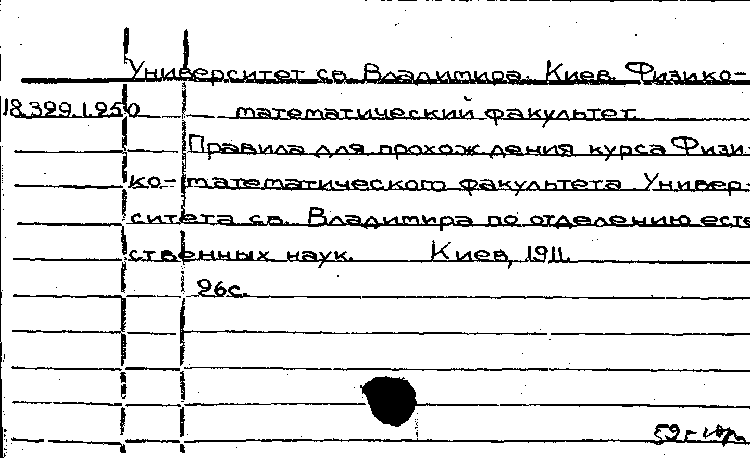 Университет св. Владимира. Киев. Физико-
18.329.1.250 математический факультет.
Правила для прохождения курса Физи-
ко-математического факультета Универ-
ситета св. Владимира по отделению есте
ственных наук. Киев, 1911.
96с.